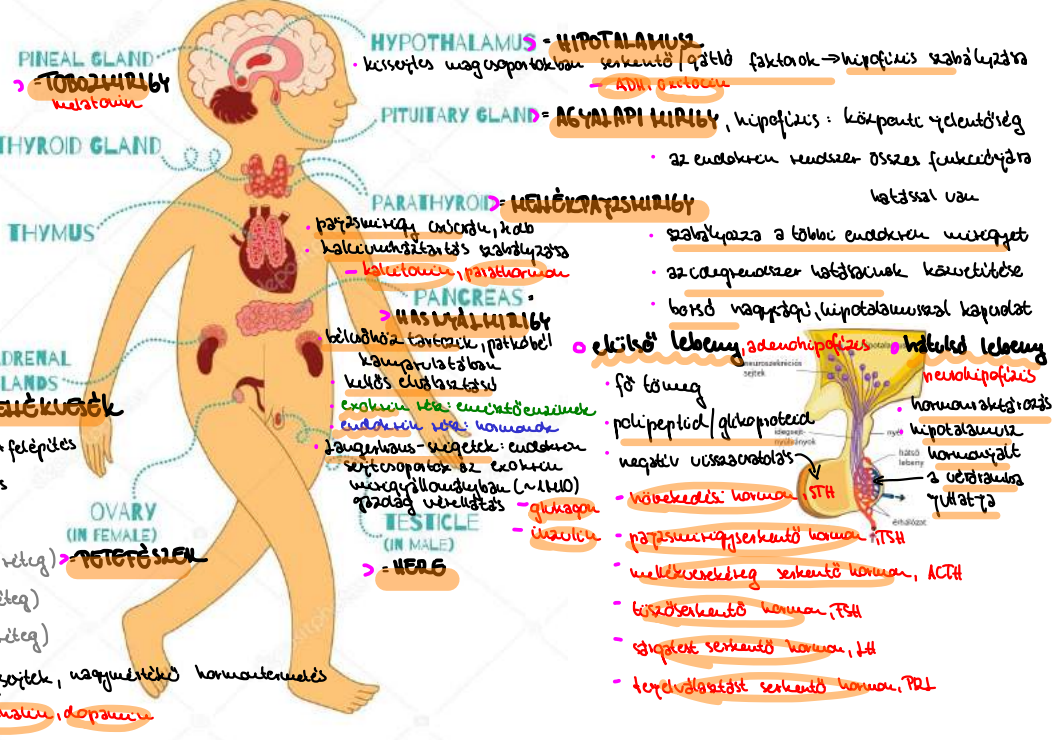 PINEAL GLAND
= TOBOZMIRIGY
melatonin
THYROID GLAND
THYMUS
ADRENAL
GLANDS
felépítés
OVARY
(IN FEMALE)
= PETEFÉSZEK
réteg)
sejtek, nagymértékű hormontermelés
dopamin
HYPOTHALAMUS = HIPOTALAMUSZ
• kissejtes magcsoportokban serkentő/gátló faktorok → hipofízis szabályzása
- ADH, oxitocin
PITUITARY GLAND = AGYALAPI MIRIGY, hipofízis: központi jelentőség
• az endokrin rendszer összes funkciójára
hatással van
• szabályozza a többi endokrin mirigyet
• az idegrendszer hatásainak közvetítése
• borsó nagyságú, hipotalamusszal kapcsolat
PARATHYROID = MELLÉKPAJZSMIRIGY
• pajzsmirigy csúcsán, 4 db
• kalciumháztartás szabályzása
- kalcitonin, parathormon
PANCREAS =
HASNYÁLMIRIGY
• bélcsőhöz tartozik, patkóbél
kanyarulatában
• kettős elválasztású
• exokrin rész: emésztőenzimek
• endokrin rész: hormonok
• Langerhans-szigetek: endokrin
sejtcsoportok az exokrin
mirigyállományban (~1 millió)
gazdag vérellátás
- glukagon
- inzulin
TESTICLE
(IN MALE)
= HERE
elülső lebeny, adenohipofízis
• fő tömeg
• polipeptid/glikoproteid
• negatív visszacsatolás
- növekedési hormon, STH
- pajzsmirigyserkentő hormon, TSH
- mellékvesekéreg serkentő hormon, ACTH
- tüszőserkentő hormon, FSH
- sárgatest serkentő hormon, LH
- tejelválasztást serkentő hormon, PRL
hátulsó lebeny
neurohipofízis
• hormonraktározás
• hipotalamusz
hormonjait
a véráramba
juttatja
neuroszekréciós
sejtek
idegsejt-
nyúlványok
nyél
hátsó
lebeny
érhálózat